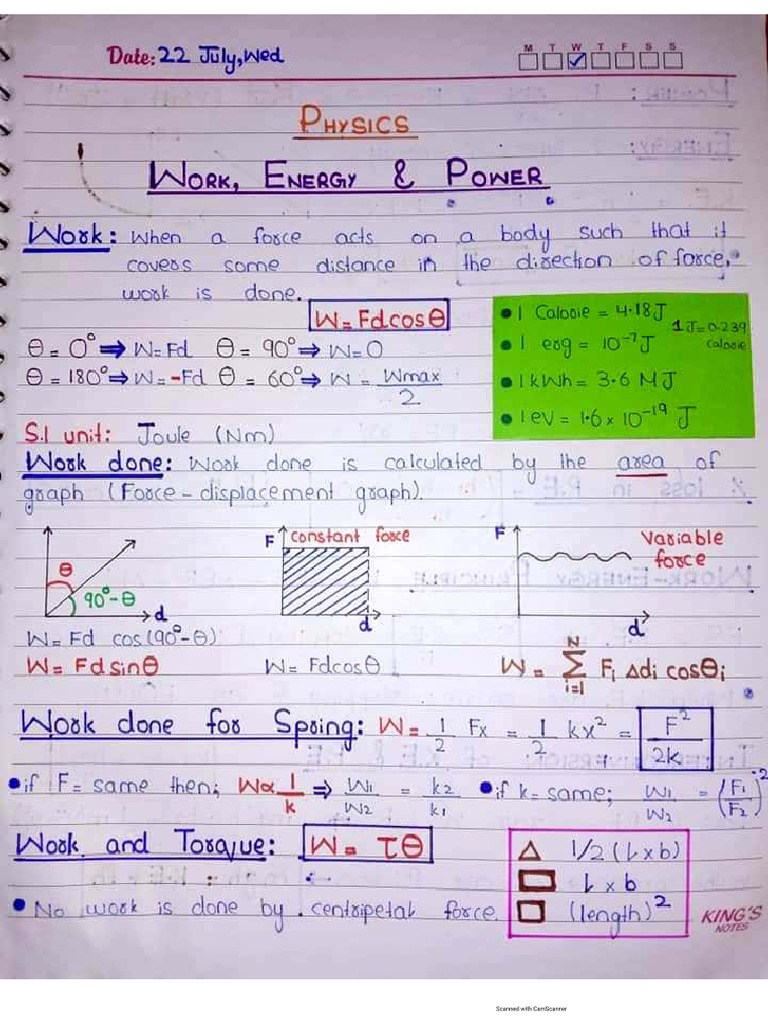 Date: 22 July, Wed
M T W T F S S
PHYSICS
WORK, ENERGY & POWER
Work: When a force acts on a body such that it
covers some distance in the direction of force,
work is done.
W = Fdcosθ
θ = 0° ⇒ W = Fd θ = 90° ⇒ W = 0
θ = 180° ⇒ W = -Fd θ = 60° ⇒ W = Wmax/2
• 1 Calorie = 4.18J
1J = 0.239 calorie
• 1 erg = 10⁻⁷ J
• 1 kWh = 3.6 MJ
• 1 eV = 1.6 x 10⁻¹⁹ J
S.I unit: Joule (Nm)
Work done: Work done is calculated by the area of
graph (Force - displacement graph).
θ
90° - θ
d
F constant force
d
F Variable
force
d
W = Fd cos(90° - θ)
W = Fd sinθ W = Fdcosθ W = Σ N i=1 Fi Δdi cosθi
Work done for Spring: W = 1/2 Fx = 1/2 kx² = F²/2k
• if F = same then; W ∝ 1/k ⇒ W₁/W₂ = k₂/k₁ • if k = same; W₁/W₂ = (F₁/F₂)²
Work and Torque: W = τθ
△ 1/2 (L x b)
▭ L x b
□ (length)²
• No work is done by centripetal force.
KING'S
NOTES
Scanned with CamScanner